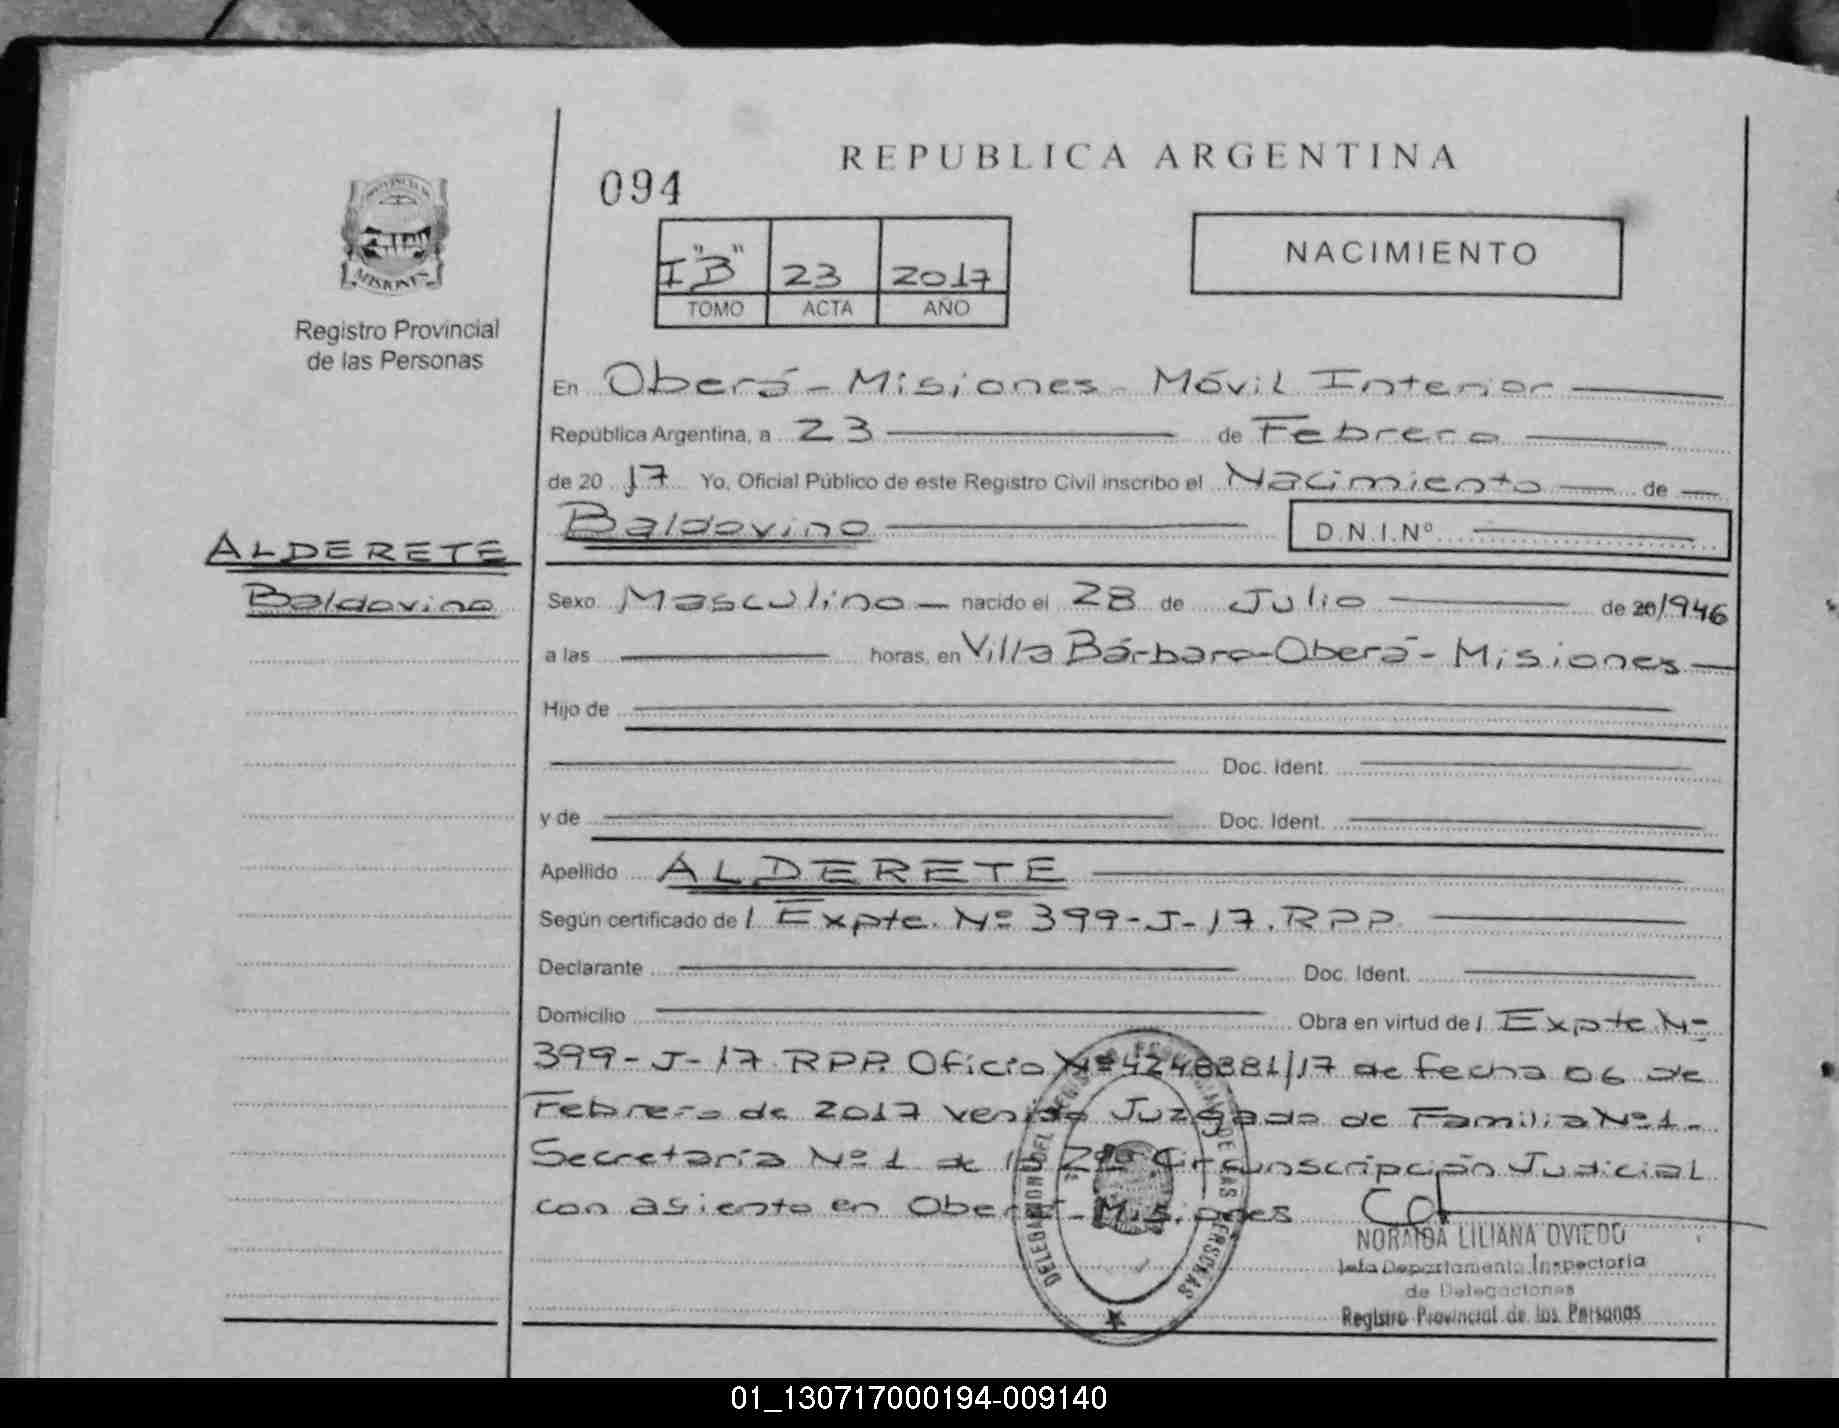 REPUBLICA ARGENTINA
094
NACIMIENTO
I "B" 23 2017
TOMO ACTA AÑO
MISIONES
Registro Provincial
de las Personas
En Oberá - Misiones - Móvil Interior
República Argentina, a 23 de Febrero
de 2017 Yo, Oficial Público de este Registro Civil inscribo el Nacimiento de
Baldovino D.N.I.Nº
ALDERETE
Baldovino
Sexo Masculino nacido el 28 de Julio de 20/1946
a las horas, en Villa Bárbaro-Oberá - Misiones
Hijo de
Doc. Ident.
y de Doc. Ident.
Apellido ALDERETE
Según certificado de / Expte. Nº 399-J-17. RPP.
Declarante Doc. Ident.
Domicilio Obra en virtud de / Expte Nº
399-J-17 RPP. Oficio Nº 4248381/17 de fecha 06 de
Febrero de 2017 venido Juzgado de Familia Nº 1 -
Secretaría Nº 1 de la 2da Circunscripción Judicial
con asiento en Oberá - Misiones
NORMA LILIANA OVIEDO
Jefa Departamento Inspectoria
de Delegaciones
Registro Provincial de las Personas
01_130717000194-009140